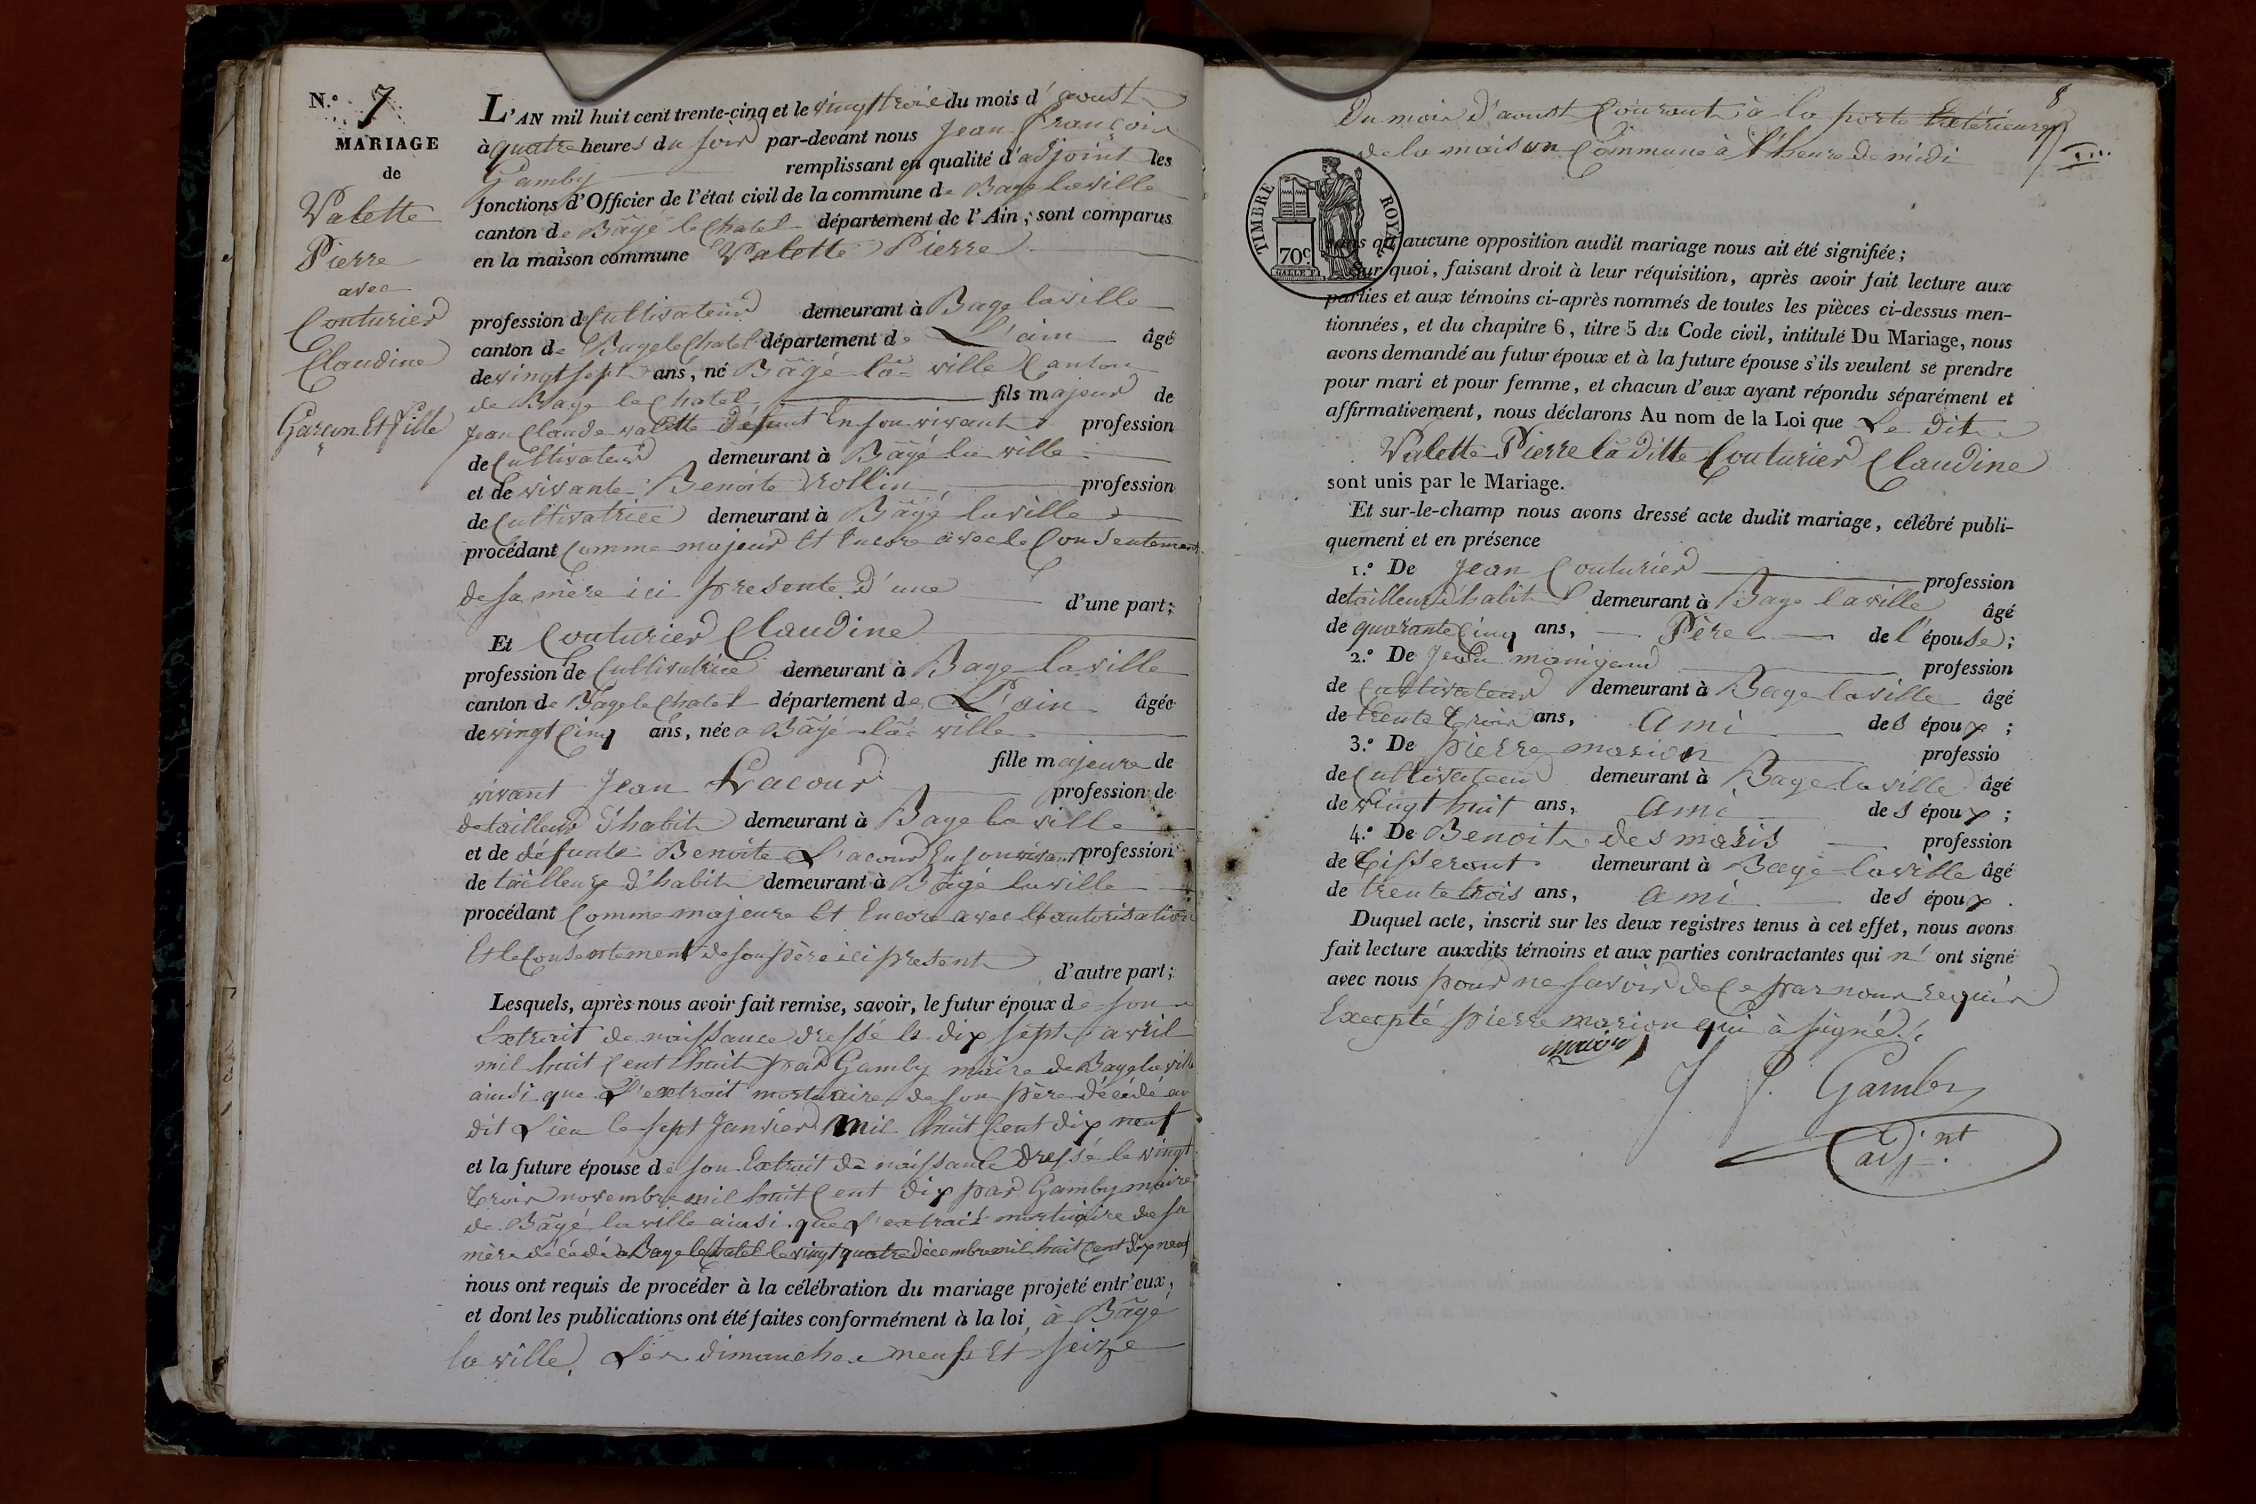 N.° 7
MARIAGE
de
Valette
Pierre
avec
Couturier
Claudine
Garçon Et fille
L'AN mil huit cent trente-cinq et le vingt trois du mois d'aoust
à quatre heures du soir par-devant nous Jean françois
Gamby remplissant en qualité d'adjoint les
fonctions d'Officier de l'état civil de la commune de Bage laville
canton de Bâgé le Chatel département de l'Ain, sont comparus
en la maison commune Valette Pierre
profession de Cultivateur demeurant à Bage laville
canton de Bage le Chatel département de L'ain âgé
de vingt sept ans, né Bâgé la ville Canton
de Bage le Chatel fils majeur de
Jean Claude valette défunt En son vivant profession
de Cultivateur demeurant à Bâgé la ville
et de vivante Benoite Rollin profession
de Cultivatrice demeurant à Bâgé laville
procédant Comme majeur Et Encore avec le Consentement
de sa mère ici presente d'une d'une part;
Et Couturier Claudine
profession de Cultivatrice demeurant à Bage la ville
canton de Bage le Chatel département de L'ain âgée
de vingt Cinq ans, née a Bâgé la ville
fille majeure de
vivant Jean Lacour profession de
de tailleur d'habit demeurant à Bage la ville
et de défunte Benoite L'acour En son vivant profession
de tailleuse d'habit demeurant à Bâgé laville
procédant Comme majeure Et Encore avec Et autorisation
Et le Consentement de son père ici present d'autre part;
Lesquels, après nous avoir fait remise, savoir, le futur époux de son
Extrait de naissance dressé le dix sept avril
mil huit Cent huit par Gamby maire de Bage la ville
ainsi que L'extrait mortuaire de son père décédé au
dit Lieu le sept Janvier mil huit Cent dix neuf
et la future épouse de son Extrait de naissance dressé le vingt
trois novembre mil huit Cent dix par Gamby maire
de Bâgé la ville ainsi que L'extrait mortuaire de sa
mère décédé a Bage le Chatel le vingt quatre décembre mil huit Cent dix neuf
nous ont requis de procéder à la célébration du mariage projeté entr'eux,
et dont les publications ont été faites conformément à la loi, à Bâgé
la ville, Les dimanches neuf Et seize
8
Du mois d'aoust Courant à la porte Extérieure
de la maison Commune à l'heure de midi
TIMBRE ROYAL
70c
sans qu'aucune opposition audit mariage nous ait été signifiée;
Sur quoi, faisant droit à leur réquisition, après avoir fait lecture aux
parties et aux témoins ci-après nommés de toutes les pièces ci-dessus men-
tionnées, et du chapitre 6, titre 5 du Code civil, intitulé Du Mariage, nous
avons demandé au futur époux et à la future épouse s'ils veulent se prendre
pour mari et pour femme, et chacun d'eux ayant répondu séparément et
affirmativement, nous déclarons Au nom de la Loi que Le dit
Valette Pierre la ditte Couturier Claudine
sont unis par le Mariage.
Et sur-le-champ nous avons dressé acte dudit mariage, célébré publi-
quement et en présence
1.° De Jean Couturier profession
de tailleur d'habit demeurant à Bage laville âgé
de quarante Cinq ans, Père de l'épouse;
2.° De Jean manigand profession
de Cultivateur demeurant à Bage laville âgé
de trente trois ans, ami des époux;
3.° De pierre marion professio
de Cultivateur demeurant à Bage laville âgé
de vingt huit ans, ami des époux;
4.° De Benoit desmaris profession
de tisserant demeurant à Bage laville âgé
de trente trois ans, ami des époux.
Duquel acte, inscrit sur les deux registres tenus à cet effet, nous avons
fait lecture auxdits témoins et aux parties contractantes qui n' ont signé
avec nous pour ne savoir de Ce par nous requis
Excepté pierre marion qui à signé
marion
J f. Gamby
adj.nt